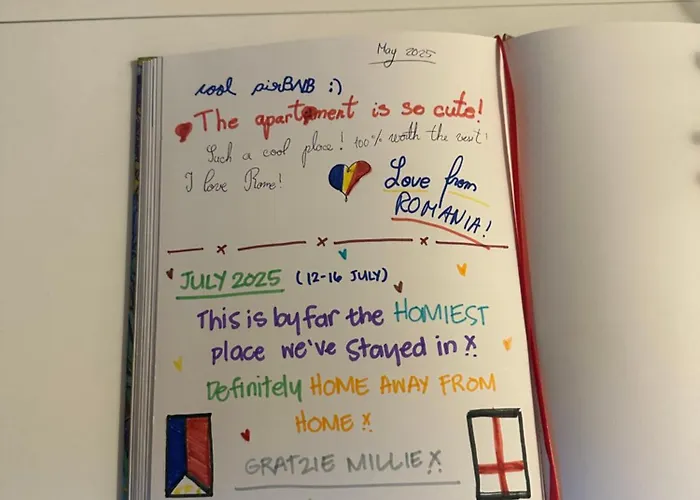 May 2025
cool airBNB :)
The apartment is so cute!
Such a cool place! 100% worth the visit!
I love Rome!
Love from
ROMANIA!
JULY 2025 (12-16 JULY)
This is by far the HOMIEST
place we've stayed in x
Definitely HOME AWAY FROM
HOME x
GRATZIE MILLIE x